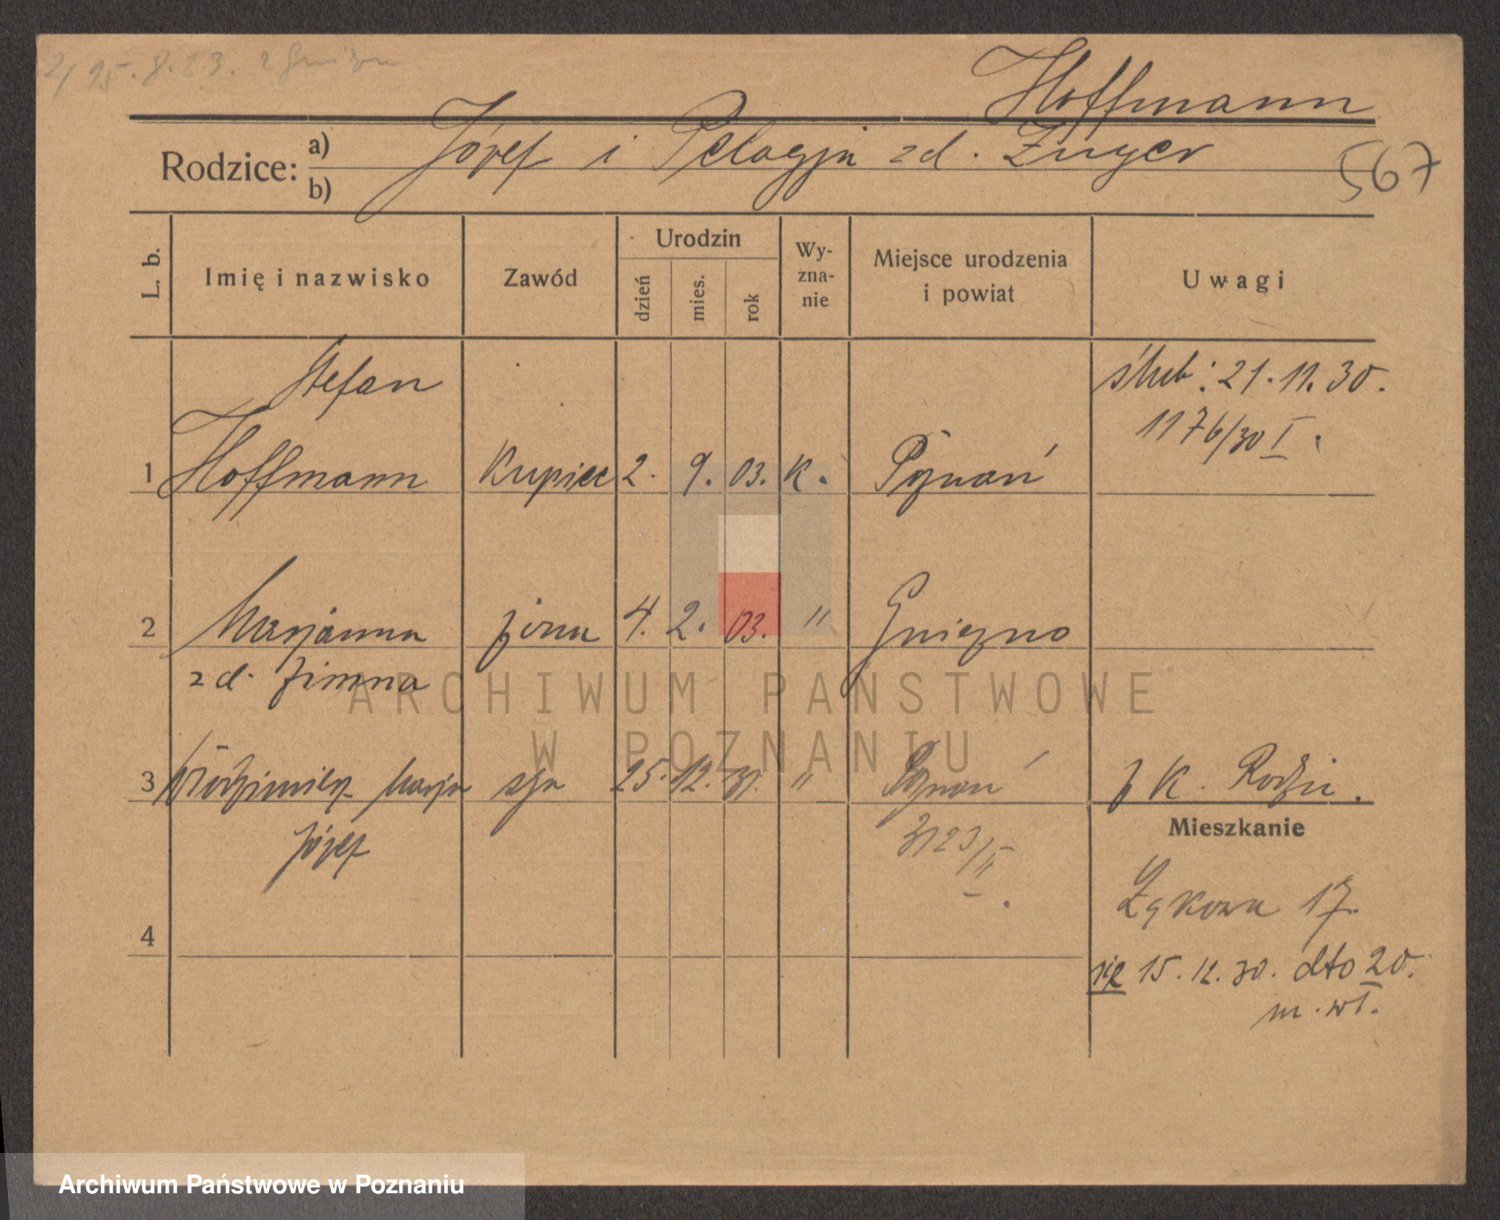 2/ 15.8.23. z Gnizna
Hoffmann
Rodzice: a) Józef i Pelagja zd. Zuger
b)
567
L. b.
Imię i nazwisko
Zawód
Urodzin
dzień
mies.
rok
Wy-
zna-
nie
Miejsce urodzenia
i powiat
Uwagi
Stefan
1 Hoffmann Kupiec 2. 9. 03. K. Poznań
ślub: 21.11.30.
1176/30 I.
2 Marjanna żona 4. 2. 03. " Gniezno
zd. Zimna
3 Włodzimierz Marja syn 25. 12. 31. " Poznań
Józef
3123/II
ż K. Rodzi.
Mieszkanie
Łąkowa 17.
15.12.30. dto 20.
m. wł.
4
ARCHIWUM PAŃSTWOWE
W POZNANIU
Archiwum Państwowe w Poznaniu